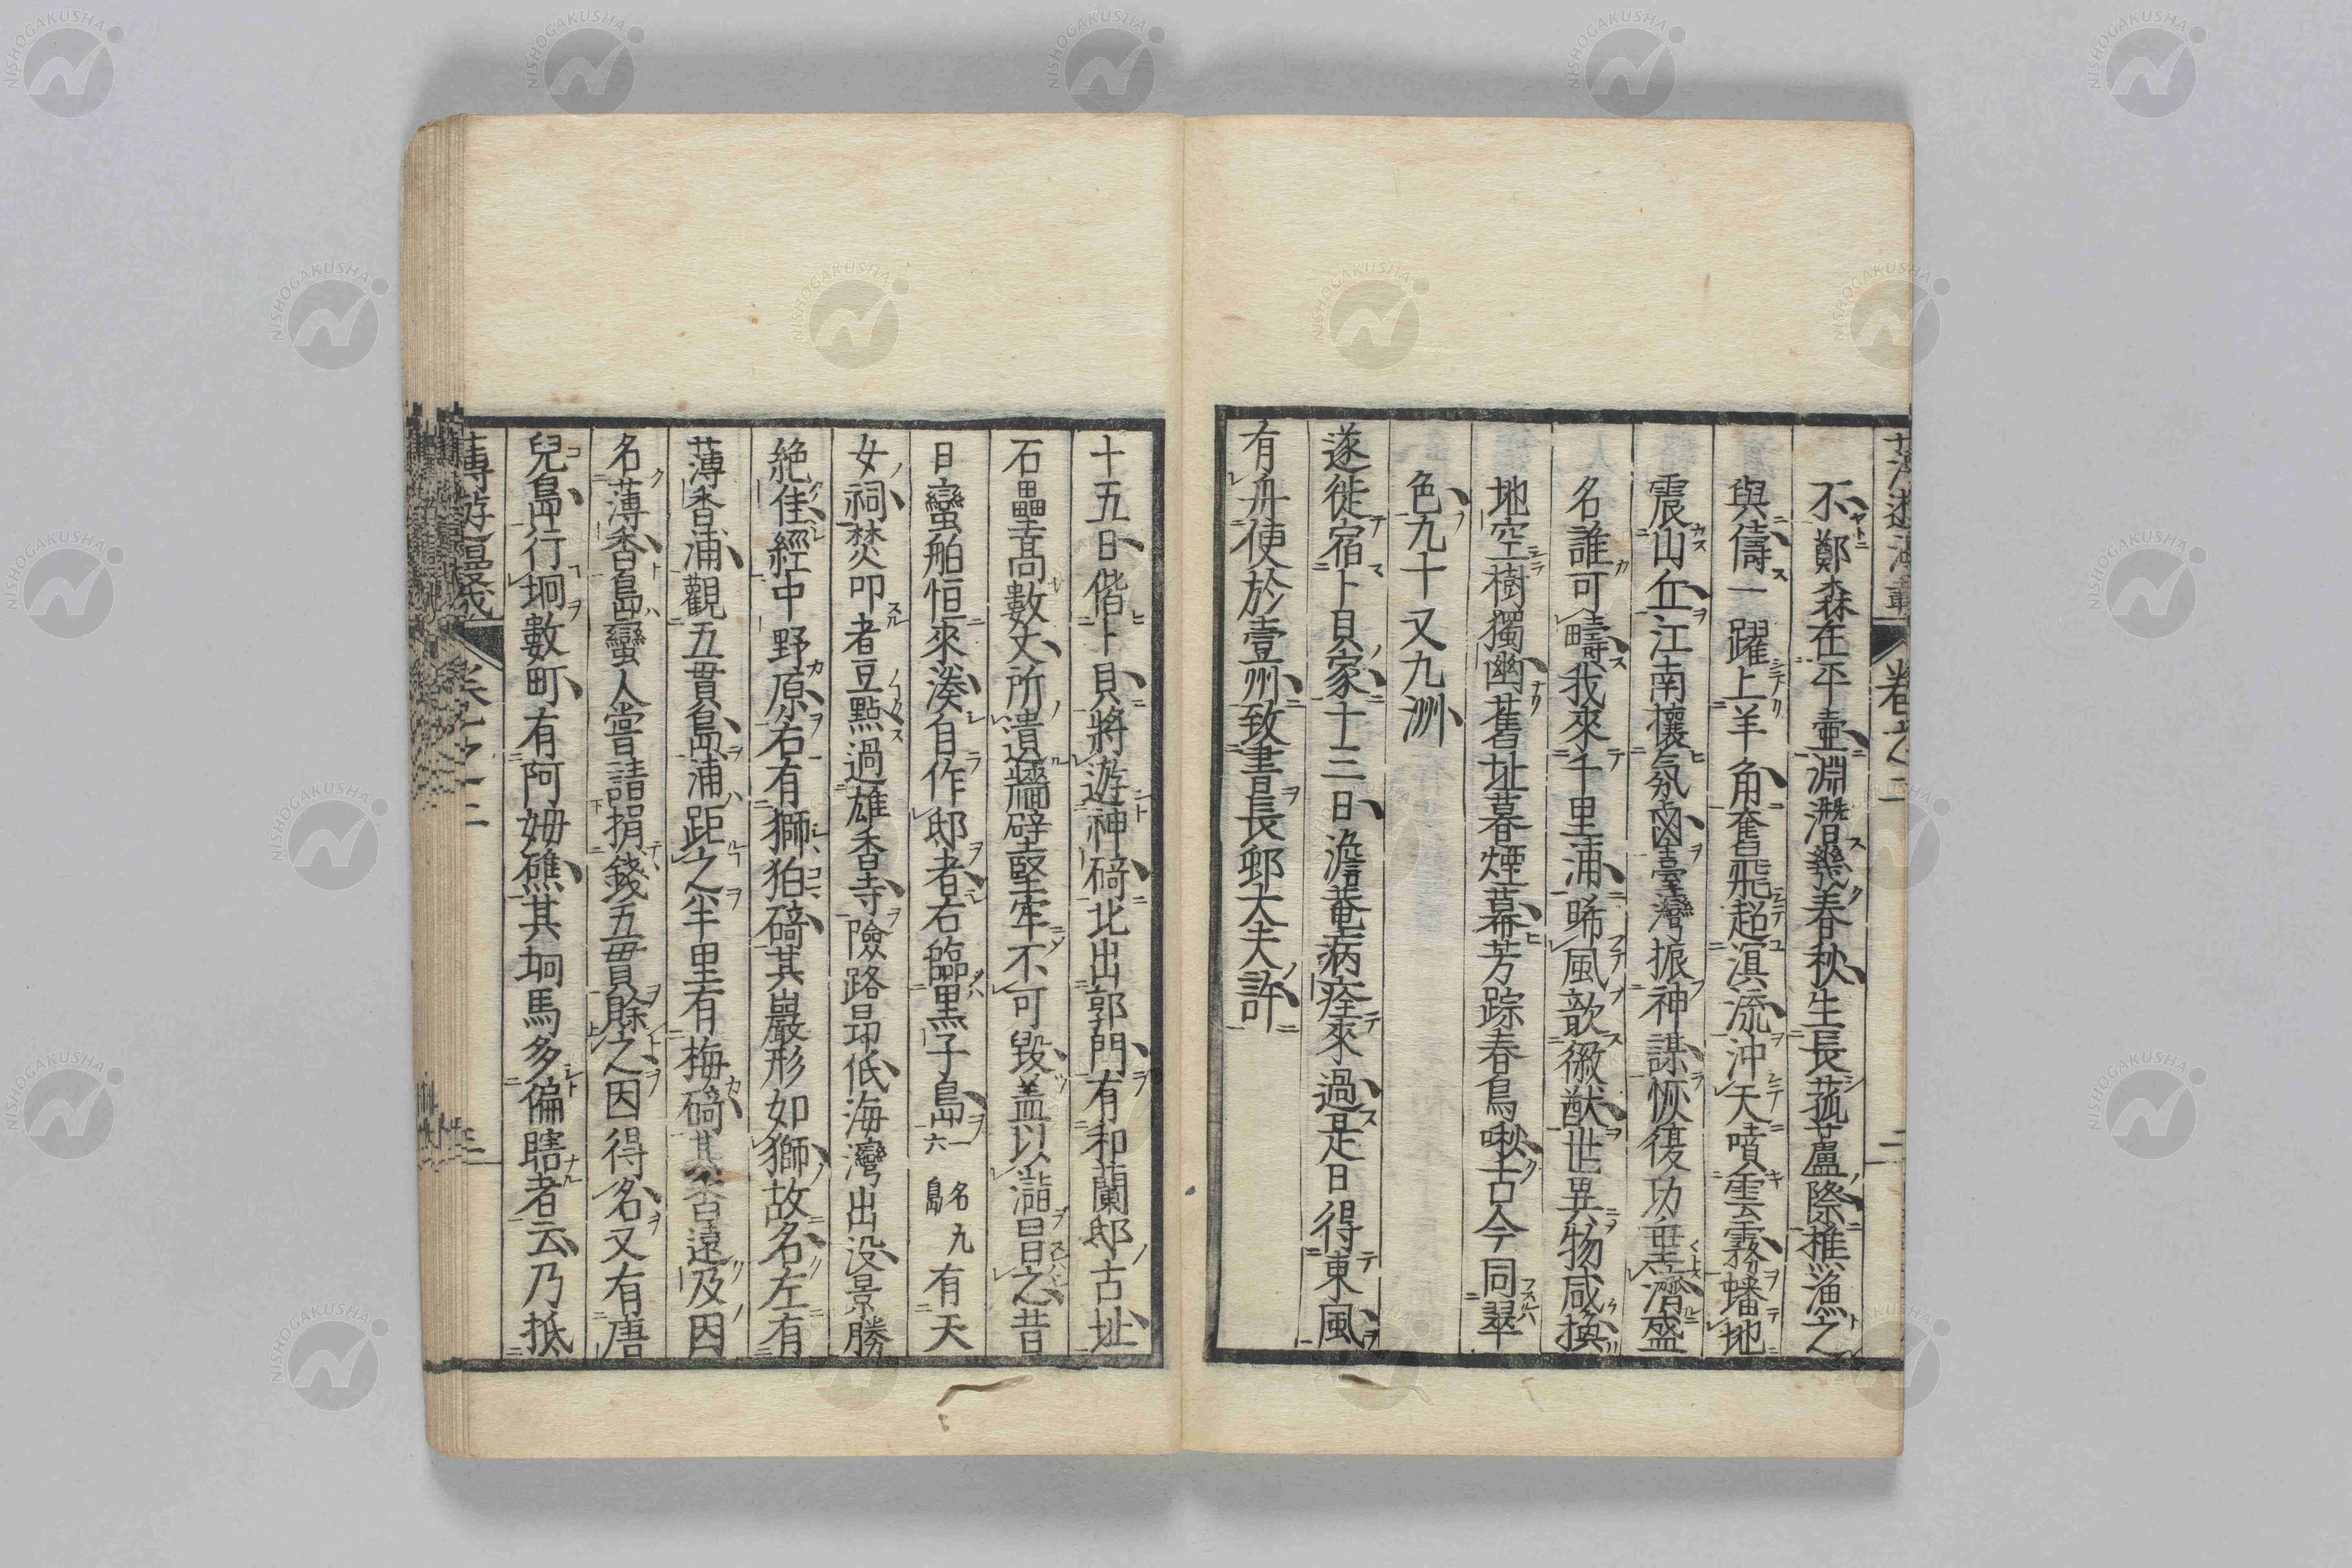 卷之二
不鄭森在平壷淵潛幾春秋生長菰蘆際樵漁之
與儔一躍上羊角奮飛超溟流沖天噴雲霧蟠地
震山丘江南攘氛鹵臺灣振神謀恢復功垂濟盛
名誰可疇我來千里浦晞風歆徽猷世異物咸換
地空樹獨幽舊址暮煙冪芳踪春鳥啾古今同翠
色九十又九洲
遂徙宿卜貝家十三日澹菴病痊來過是日得東風
有舟使於壹州致書長邨大夫許
十五日偕卜貝將遊神碕北出郭門有和蘭邸古址
石壘高數丈所潰牆壁堅牢不可毀蓋以瀒㫺之昔
日蠻舶恒來湊自作邸者右臨黒子島一名九六島有天
女祠焚叩者豆點過雄香寺險路昂低海灣出没景勝
絶佳經中野原右有獅狛碕其巖形如獅故名左有
薄香浦觀五貫島浦距之半里有梅碕其香遠及因
名薄香島蠻人嘗請捐錢五貫賖之因得名又有唐
兒島行坰數町有阿姆礁其坰馬多偏瞎者云乃抵